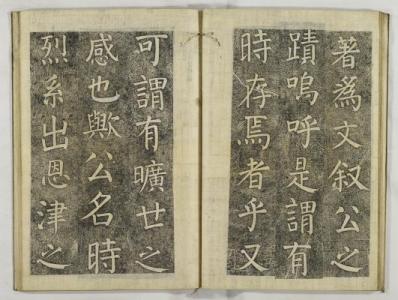 著爲文叙公之
蹟嗚呼是謂有
時存焉者乎又
可謂有曠世之
感也歟公名時
烈系出恩津之